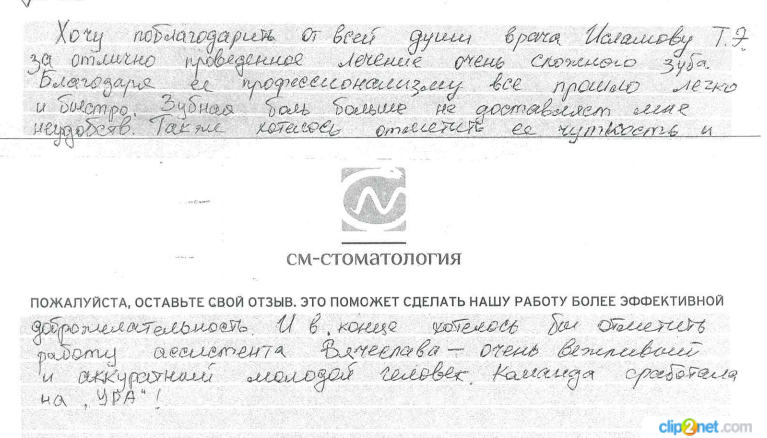 Хочу поблагодарить от всей души врача Исламову Т.Э
за отлично проведенное лечение очень сложного зуба.
Благодаря ее профессионализму все прошло легко
и быстро. Зубная боль больше не доставляет мне
неудобств. Также хотелось отметить ее чуткость и
см-стоматология
ПОЖАЛУЙСТА, ОСТАВЬТЕ СВОЙ ОТЗЫВ. ЭТО ПОМОЖЕТ СДЕЛАТЬ НАШУ РАБОТУ БОЛЕЕ ЭФФЕКТИВНОЙ
доброжелательность. И в конце хотелось бы отметить
работу ассистента Вячеслава – очень вежливый
и аккуратный молодой человек. Команда сработала
на „УРА“!
clip2net.com